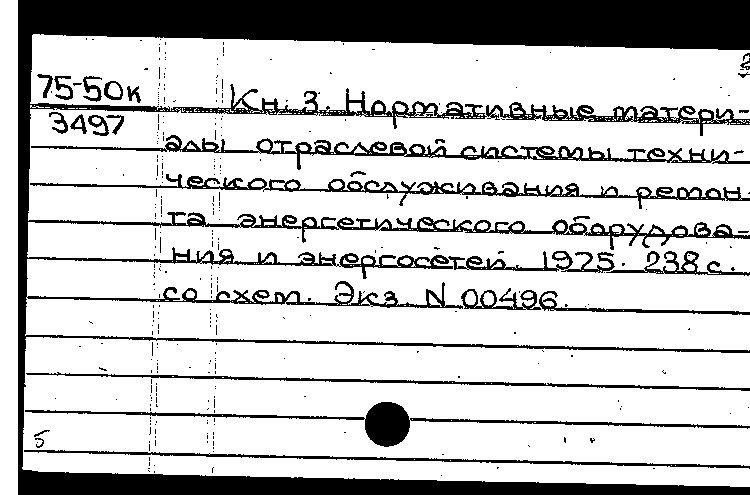 75-50к
3497
Кн. 3. Нормативные матери-
алы отраслевой системы техни-
ческого обслуживания и ремон-
та энергетического оборудова-
ния и энергосетей. 1975. 238 с.
со схем. Экз. N 00496.
5